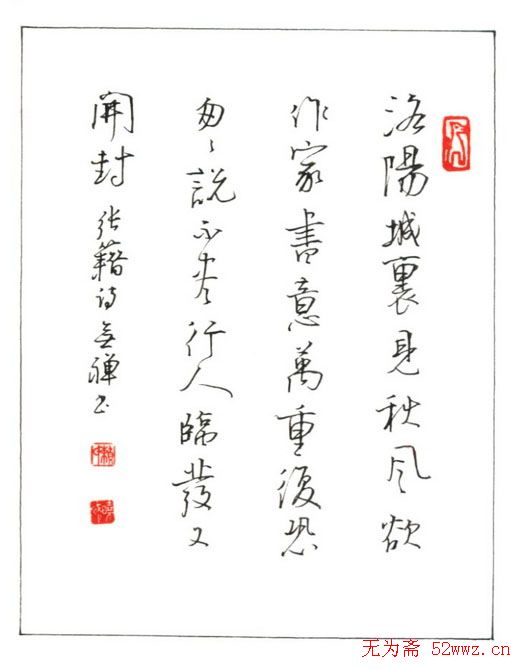 洛陽城裏見秋风欲
作家書意萬重復恐
匆〻説不尽行人臨發又
開封 张籍诗 无禅书
无为斋 52wwz.cn